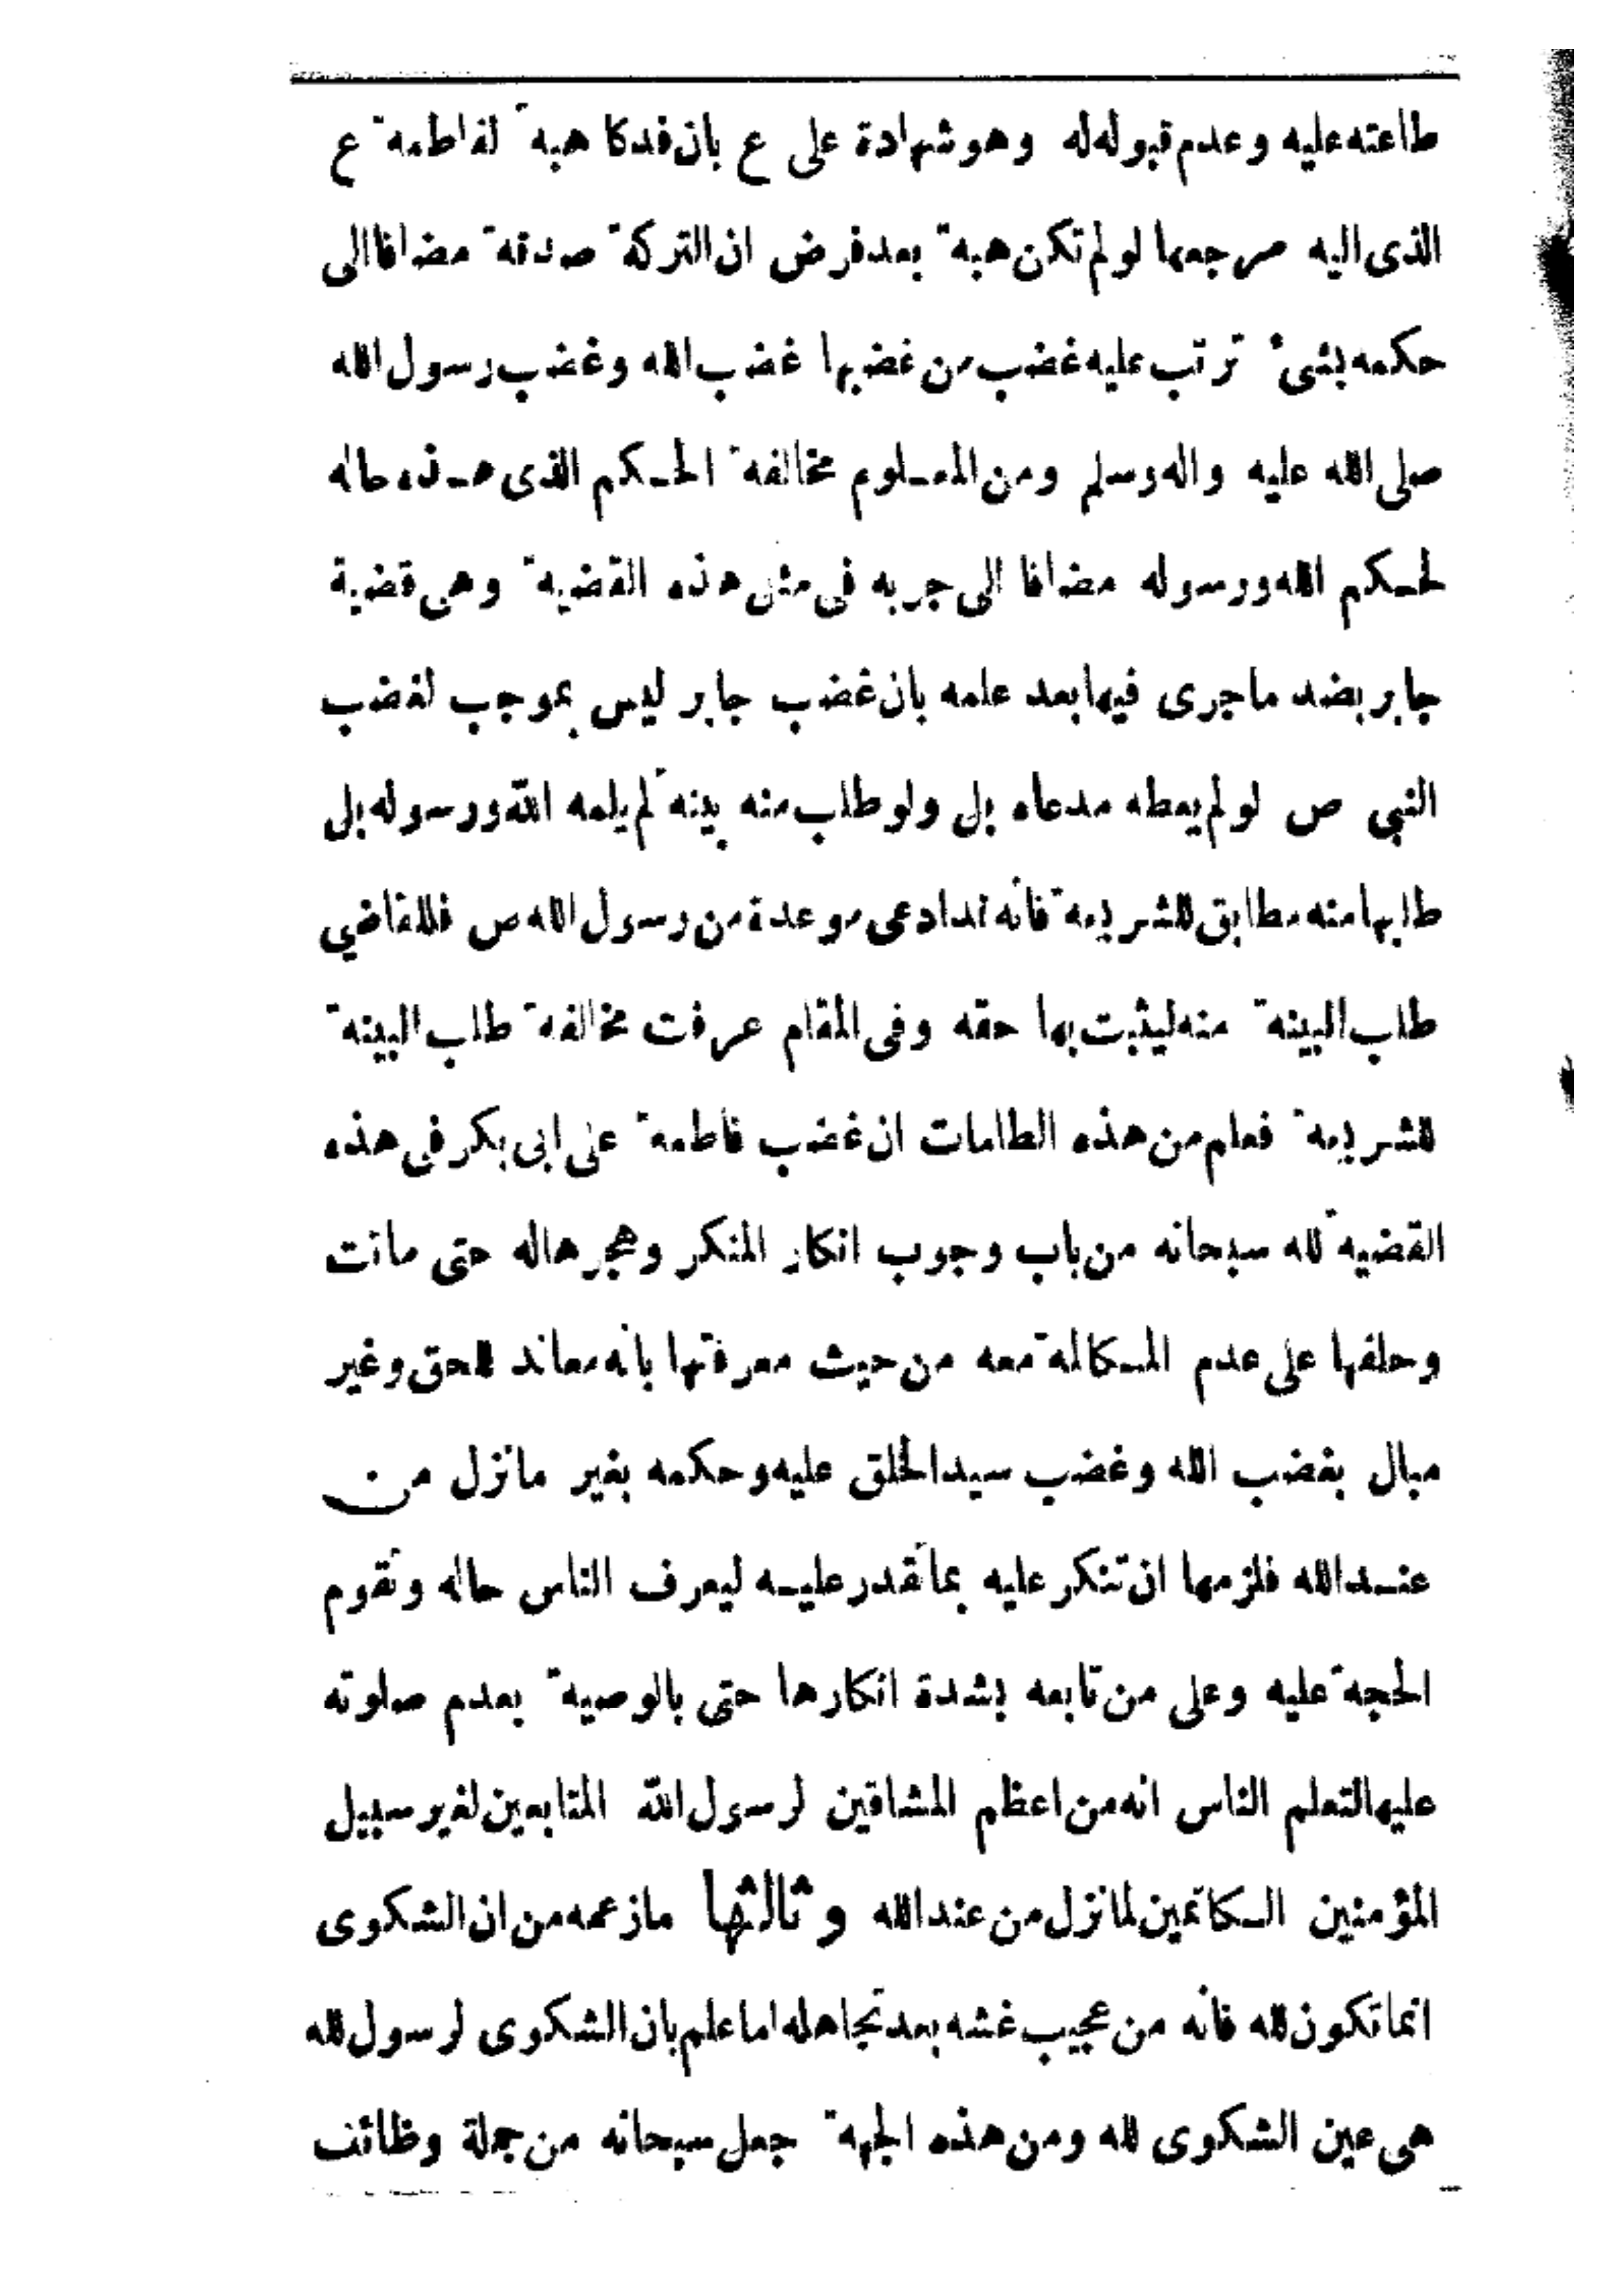 طاعته عليه وعدم قبوله له وهو شهادة على ع بان فدكا هبة لفاطمة ع
الذى اليه مرجعها لو لم تكن هبة بعد فرض ان التركة صدقة مضافا الى
حكمه بشئ ترتب عليه غضب من غضبها غضب الله وغضب رسول الله
صلى الله عليه واله وسلم ومن المعلوم مخالفة الحكم الذى هذه حاله
لحكم الله ورسوله مضافا الى جربه فى مثل هذه القضية وهى قضية
جابر بضد ما جرى فيها بعد علمه بان غضب جابر ليس بموجب لغضب
النبي ص لو لم يعطه مدعاه بل ولو طلب منه بينة لم يلمه الله ورسوله بل
طلبها منه مطابق للشريعة فانه ادعى موعدة من رسول الله ص فللقاضي
طلب البينة منه ليثبت بها حقه وفى المقام عرفت مخالفة طلب البينة
للشريعة فعلم من هذه الطامات ان غضب فاطمة على ابى بكر فى هذه
القضية لله سبحانه من باب وجوب انكار المنكر وهجرها له حتى ماتت
وحلفها على عدم المكالمة معه من حيث معرفتها بانه معاند للحق وغير
مبال بغضب الله وغضب سيد الخلق عليه وحكمه بغير ما نزل من
عند الله فلزمها ان تنكر عليه بما تقدر عليه ليعرف الناس حاله وتقوم
الحجة عليه وعلى من تابعه بشدة انكارها حتى بالوصية بعدم صلوته
عليها لتعلم الناس انه من اعظم المشاقين لرسول الله المتابعين لغير سبيل
المؤمنين الكاتمين لما نزل من عند الله وثالثها ما زعمه من ان الشكوى
انما تكون لله فانه من عجيب غشه بعد تجاهله اما علم بان الشكوى لرسول لله
هى عين الشكوى لله ومن هذه الجهة جعل سبحانه من جملة وظائف